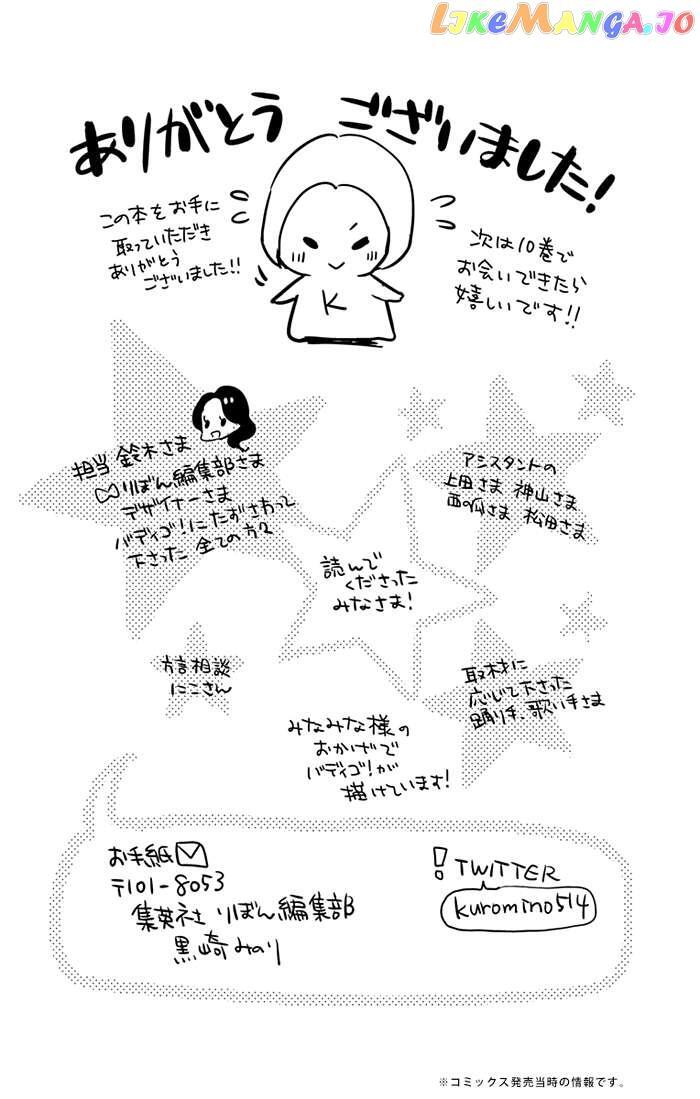 LIKEMANGA.IO
ありがとう ございました!
この本をお手に
取っていただき
ありがとう
ございました!!
K
次は10巻で
お会いできたら
嬉しいです!!
担当 鈴木さま
りぼん編集部さま
デザイナーさま
バディゴ!にたずさわって
下さった 全ての方々
アシスタントの
上田さま 神山さま
西の瓜さま 松田さま
読んで
くださった
みなさま!
方言相談
にこさん
取材に
応じて下さった
踊り手、歌い手さま
みなみな様の
おかげで
バディゴ!が
描けています!
お手紙
〒101-8053
集英社 りぼん編集部
黒崎みのり
! TWITTER
kuromino514
※コミックス発売当時の情報です。